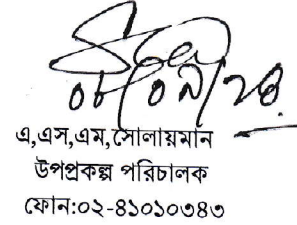 এ,এস,এম,সোলায়মান
উপপ্রকল্প পরিচালক
ফোন:০২-৪১০১০৩৪৩